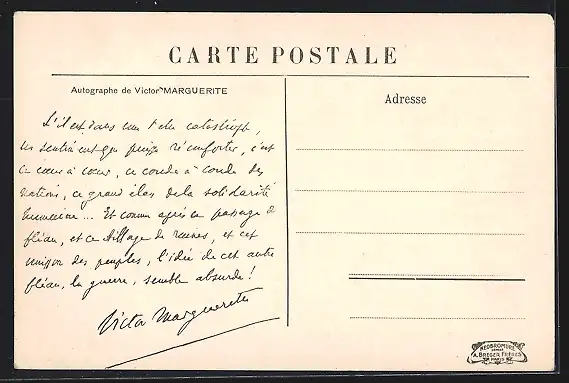 CARTE POSTALE
Autographe de Victor MARGUERITE
Adresse
S'il est dans une telle catastrophe,
un sentiment qui puisse réconforter, c'est
ce cœur à cœur, ce coude à coude des
nations, ce grand élan de la solidarité
humaine... Et comme après ce passage de
fléau, et ce village de ruines, et cette
union des peuples, l'idée de cet autre
fléau, la guerre, semble absurde!
Victor Marguerite
NEOBROMURE
A. BREGER FRÈRES
PARIS